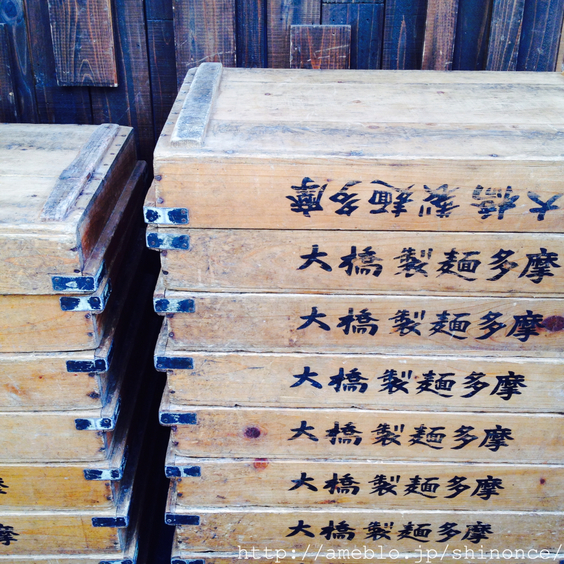 大橋製麺多摩
大橋製麺多摩
大橋製麺多摩
大橋製麺多摩
大橋製麺多摩
大橋製麺多摩
大橋製麺多摩
http://ameblo.jp/shinonce/